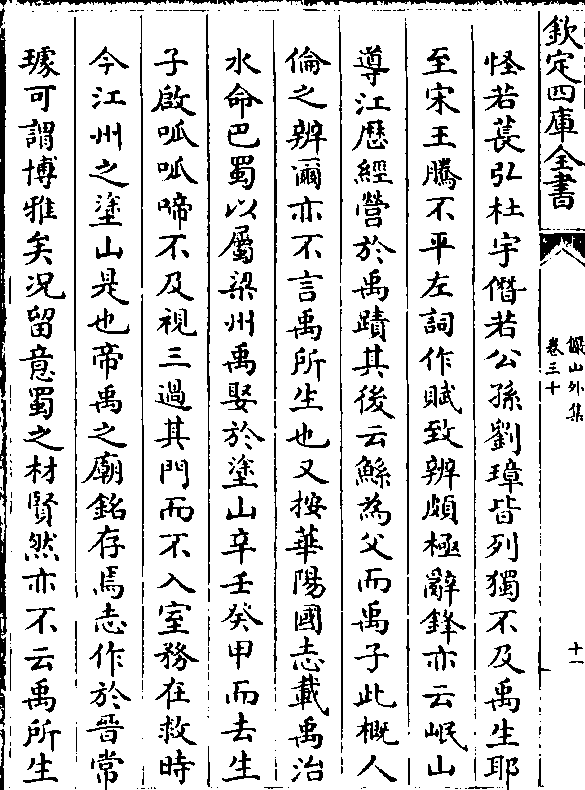 欽定四庫全書
儼山外集
卷三十
十一
怪若萇弘杜宇僭若公孫劉璋皆列獨不及禹生耶
至宋王騰不平左詞作賦致辨頗極辭鋒亦云岷山
導江歷經營於禹蹟其後云鯀為父而禹子此概人
倫之辨爾亦不言禹所生也又按華陽國志載禹治
水命巴蜀以屬梁州禹娶於塗山辛壬癸甲而去生
子啟呱呱啼不及視三過其門而不入室務在救時
今江州之塗山是也帝禹之廟銘存焉志作於晉常
璩可謂博雅矣況留意蜀之材賢然亦不云禹所生